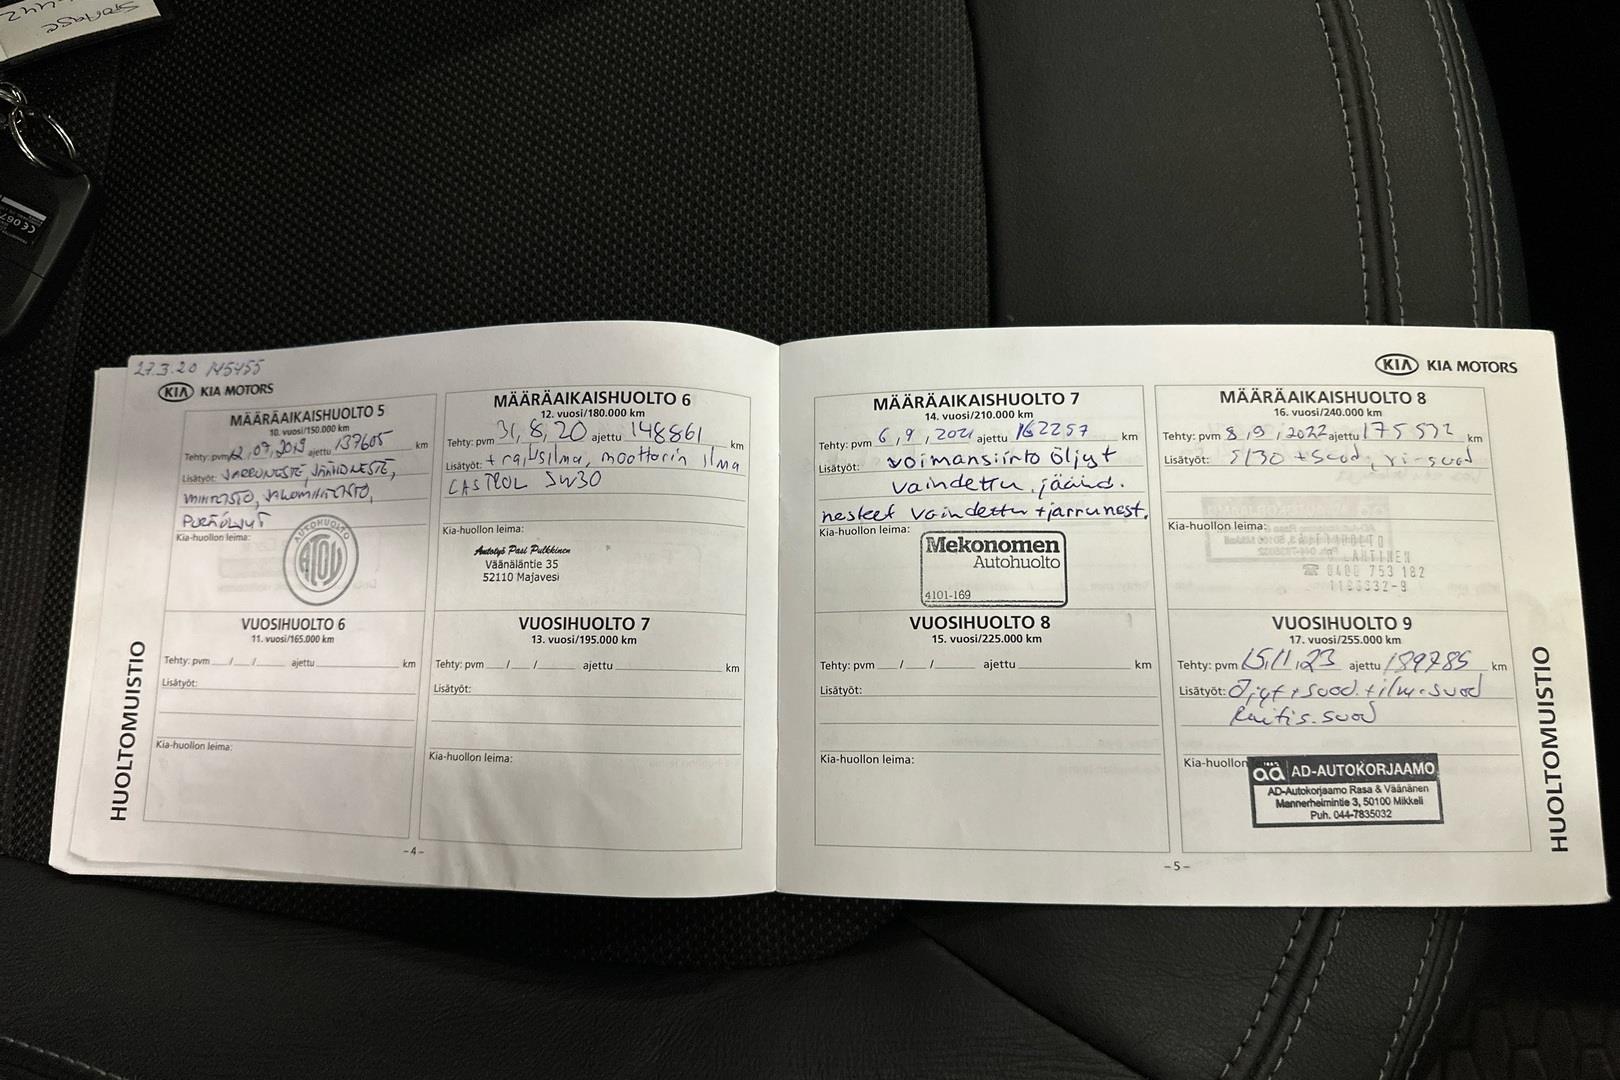 27.3.20 145455
KIA KIA MOTORS
MÄÄRÄAIKAISHUOLTO 5
10. vuosi/150.000 km
Tehty: pvm 12,07,2019 ajettu 137605 km
Lisätyöt: JARRUNESTE, JÄÄHDNESTE,
VAIHTEISTO, JAKOVAIHTEISTO,
PERÄÖLJYT
Kia-huollon leima:
AUTOHUOLTO
VUOSIHUOLTO 6
11. vuosi/165.000 km
Tehty: pvm __/__/__ ajettu km
Lisätyöt:
Kia-huollon leima:
MÄÄRÄAIKAISHUOLTO 6
12. vuosi/180.000 km
Tehty: pvm 31,8,20 ajettu 148861 km
Lisätyöt: + raitisilma, moottorin ilma
CASTROL 5W30
Kia-huollon leima:
Autotyö Pasi Pulkkinen
Väänäläntie 35
52110 Majavesi
VUOSIHUOLTO 7
13. vuosi/195.000 km
Tehty: pvm __/__/__ ajettu km
Lisätyöt:
Kia-huollon leima:
HUOLTOMUISTIO
-4-
KIA KIA MOTORS
MÄÄRÄAIKAISHUOLTO 7
14. vuosi/210.000 km
Tehty: pvm 6,9,2021 ajettu 162257 km
Lisätyöt: voimansiirto öljyt
vaihdettu, jäähd.
nesteet vaihdettu + jarrunest.
Kia-huollon leima:
Mekonomen
Autohuolto
4101-169
VUOSIHUOLTO 8
15. vuosi/225.000 km
Tehty: pvm __/__/__ ajettu km
Lisätyöt:
Kia-huollon leima:
MÄÄRÄAIKAISHUOLTO 8
16. vuosi/240.000 km
Tehty: pvm 8,9,2022 ajettu 175532 km
Lisätyöt: 5/30 + suod,
Kia-huollon leima:
0400 753 182
VUOSIHUOLTO 9
17. vuosi/255.000 km
Tehty: pvm 15,11,23 ajettu 189785 km
Lisätyöt: Öljyt + suod. + ilm.suod
Raitis.suod
Kia-huollon
AD-AUTOKORJAAMO
AD-Autokorjaamo Rasa & Väänänen
Mannerheimintie 3, 50100 Mikkeli
Puh. 044-7835032
HUOLTOMUISTIO
-5-